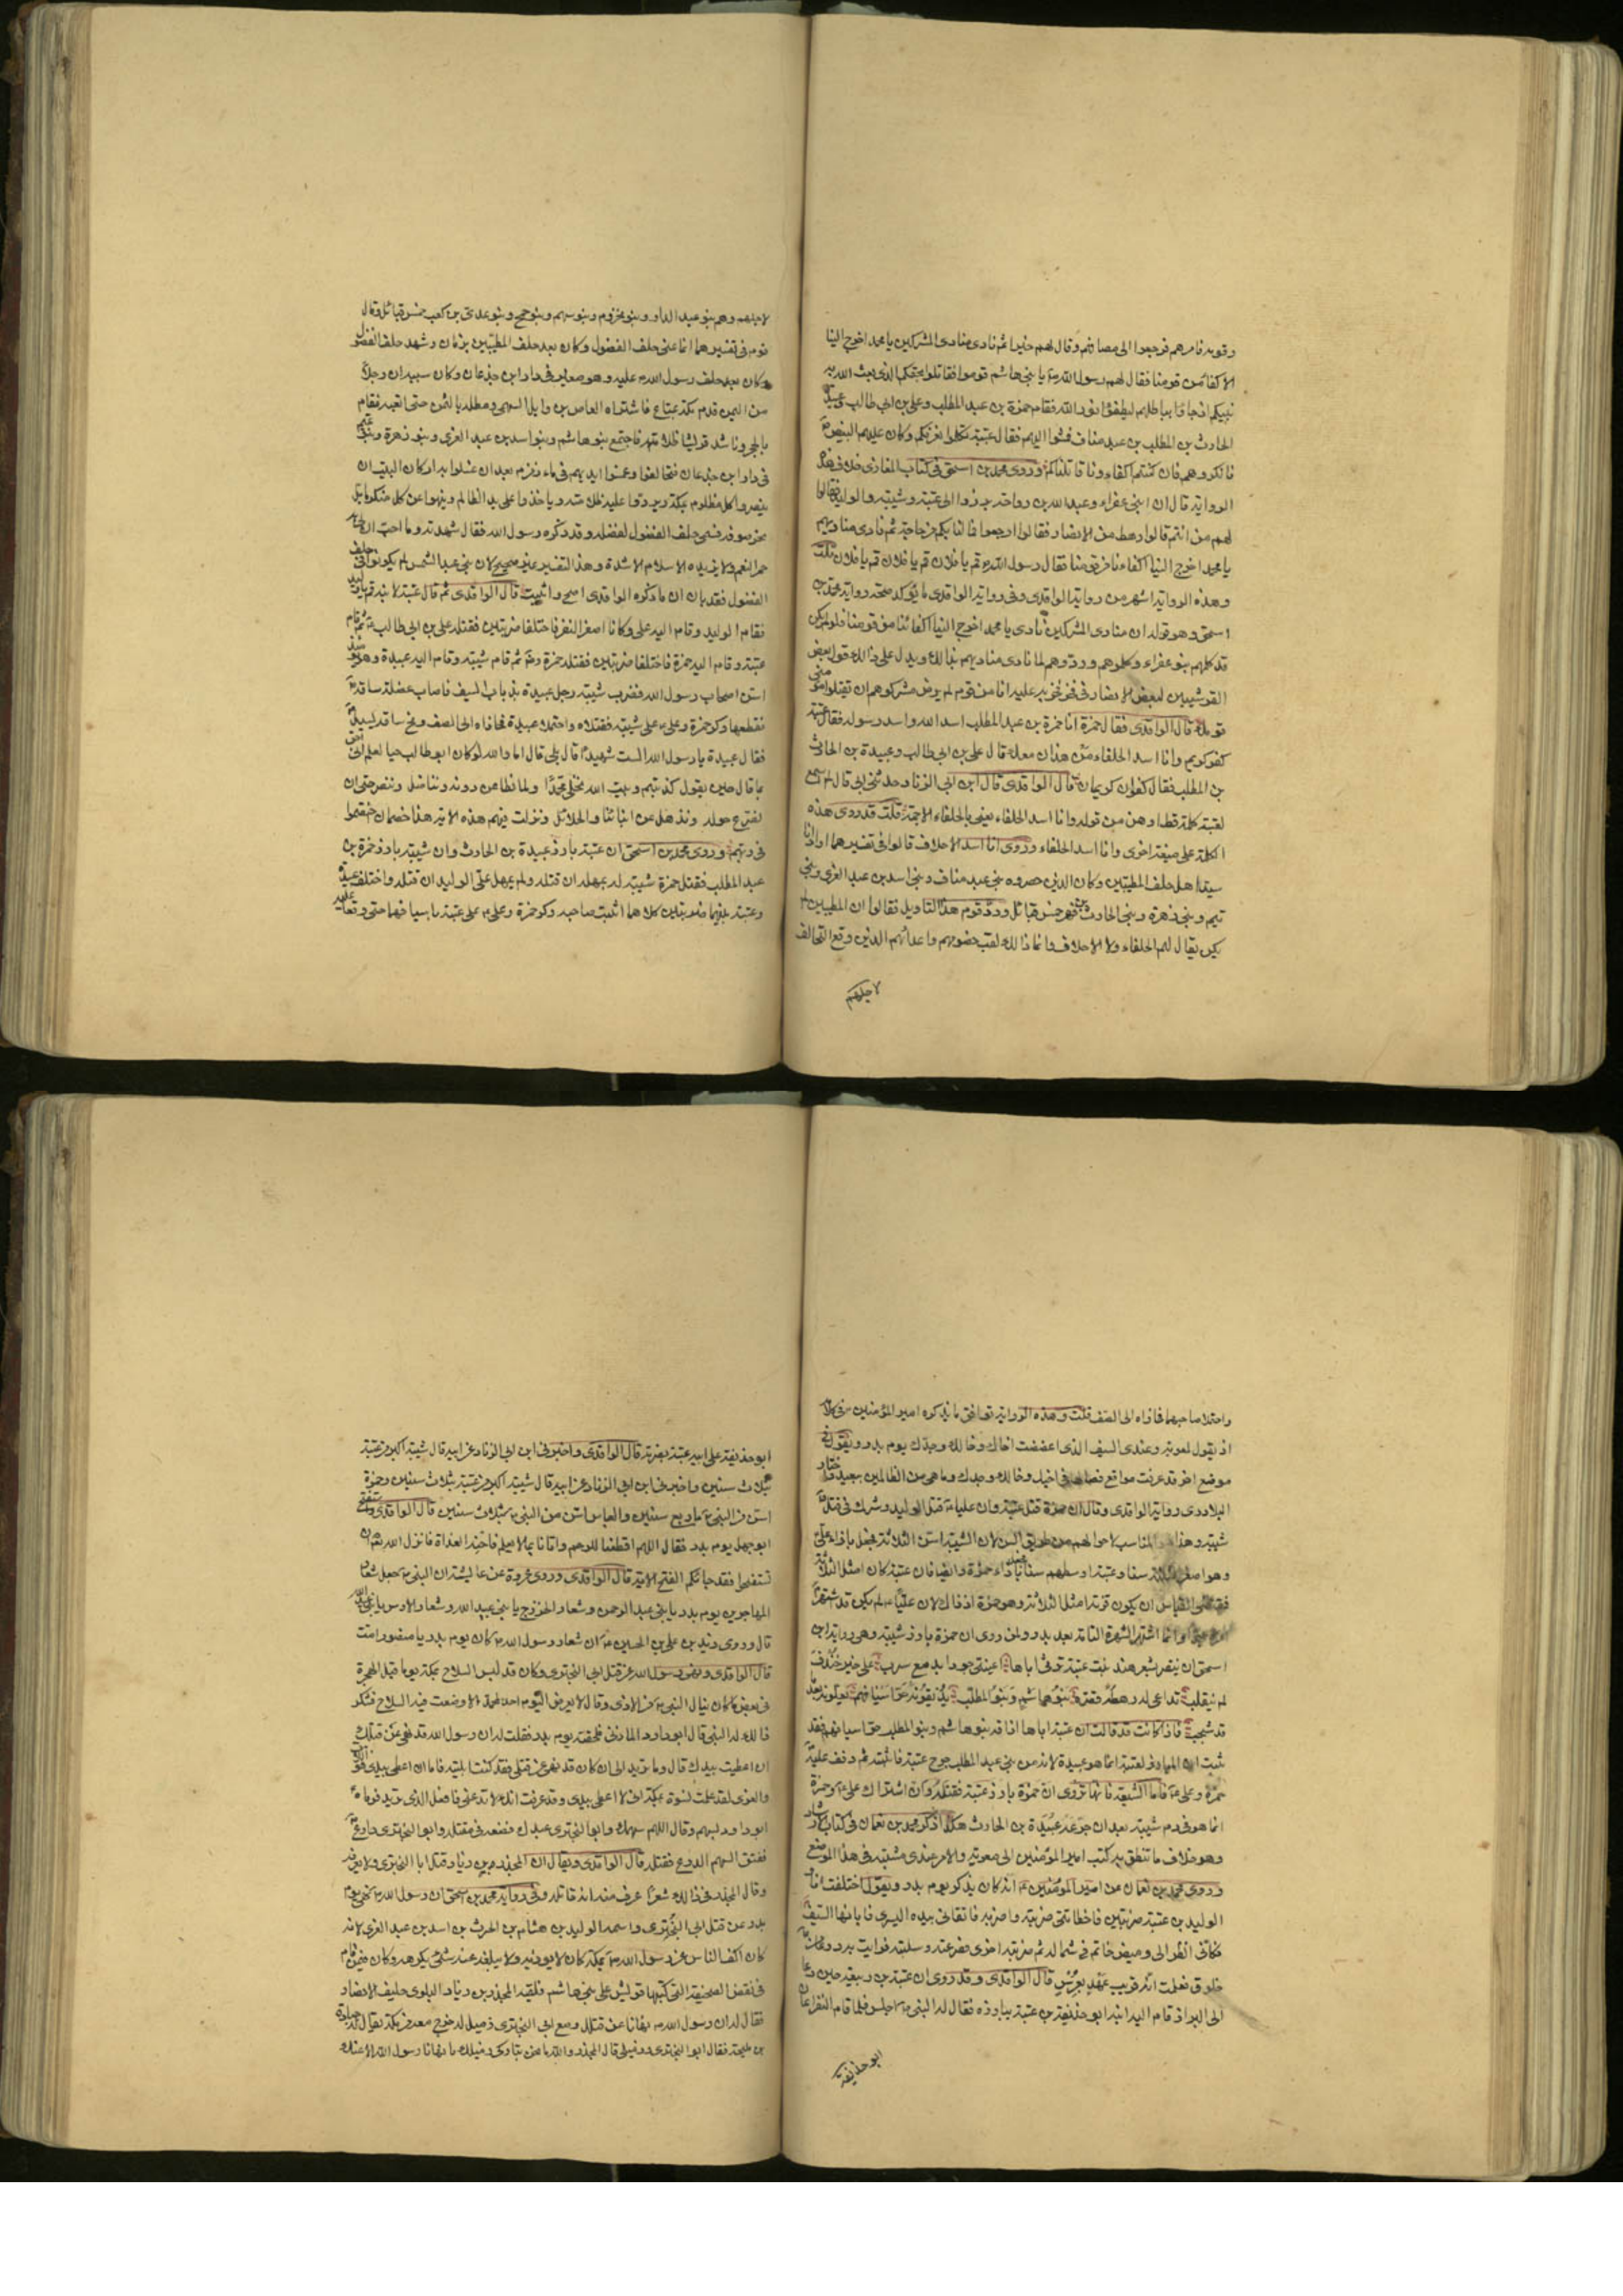 وقومه فامرهم فرجعوا الى مصافهم وقال لهم خيرا ثم نادى منادى المشركين يا محمد اخرج الينا
الاكفاء من قومنا فقال لهم رسول الله يا بنى هاشم قوموا فقاتلوا بحقكم الذى بعث الله به
نبيكم اذ جاؤا بباطلهم ليطفئوا نور الله فقام حمزة بن عبد المطلب وعلى بن ابى طالب وعبيدة بن
الحارث بن المطلب بن عبد مناف فمشوا اليهم فقال عتبة تكلموا نعرفكم وكان عليهم البيض
فانكروهم فان كنتم اكفاءنا قاتلناكم وروى محمد بن اسحق فى كتاب المغازى خلاف هذه
الرواية قال ان ابنى عفراء وعبد الله بن رواحة برزوا الى عتبة وشيبة والوليد فقالوا
لهم من انتم قالوا رهط من الانصار فقالوا ارجعوا فما لنا بكم من حاجة ثم نادى مناديهم
يا محمد اخرج الينا اكفاءنا من قومنا فقال رسول الله قم يا فلان قم يا فلان قم يا فلان قلت
وهذه الرواية اشهر من رواية الواقدى وفى رواية الواقدى ما يؤكد صحة رواية محمد بن
اسحق وهو قوله ان منادى المشركين نادى يا محمد اخرج الينا اكفائنا من قومنا فلو لم يكن
قد كلمهم بنو عفراء وكلموهم وردوهم لما نادى مناديهم بذلك ويدل على ذلك قول بعض
القرشيين لبعض الانصار فى فخر فخر به عليه انا من قوم لم يرض مشركوهم ان يقتلوا مؤمنى
قومك قال الواقدى فقال حمزة انا حمزة بن عبد المطلب اسد الله واسد رسوله فقال عتبة
كفو كريم وانا اسد الحلفاء من هذان معك قال على بن ابى طالب وعبيدة بن الحارث
بن المطلب فقال كفوان كريمان قال الواقدى قال ابن ابى الزناد حدثنى ابى قال لم اسمع
لعتبة كلمة قط اوهن من قوله وانا اسد الحلفاء يعنى بالحلفاء الاجمة قلت قد روى هذه
الكلمة على صيغة اخرى وانا اسد الحلفاء وروى انا اسد الاحلاف قالوا فى تفسيرهما اراد انا
سيد اهل حلف المطيبين وكان الذين حضروه بنى عبد مناف وبنى اسد بن عبد العزى وبنى
تيم وبنى زهرة وبنى الحارث بن فهر خمس قبائل ورد قوم هذا التاويل فقالوا ان المطيبين لم
يكن يقال لهم الحلفاء ولا الاحلاف وانما ذلك لقب خصومهم واعدائهم الذين وقع التحالف
لاجلهم
لاجلهم وهم بنو عبد الدار وبنو مخزوم وبنو سهم وبنو جمح وبنو عدى بن كعب خمس قبائل وقال
قوم فى تفسيرهما انما عنى حلف الفضول وكان بعد حلف المطيبين بزمان وشهد حلف الفضول
وكان بعد حلف رسول الله عليه وهو صغير فى دار ابن جدعان وكان سببه ان رجلا
من اليمن قدم مكة بمتاع فاشتراه العاص بن وايل السهمى ومطله بالثمن حتى اتعبه فقام
بالحجر وناشد قريشا ظلامته فاجتمع بنو هاشم وبنو اسد بن عبد العزى وبنو زهرة وبنو تميم
فى دار ابن جدعان فتحالفوا وغمسوا ايديهم فى ماء زمزم بعد ان غسلوا به اركان البيت ان
ينصروا كل مظلوم بمكة ويردوا عليه ظلامته وياخذوا على يد الظالم وينهوا عن كل منكر ما بل
بحر صوفة فسمى حلف الفضول لفضله وقد ذكره رسول الله فقال شهدته وما احب ان لى به
حمر النعم ولا يزيده الاسلام الا شدة وهذا التفسير غير صحيح لان بنى عبد الشمس لم يكونوا فى حلف
الفضول فقد بان ان ما ذكره الواقدى اصح واثبت قال الواقدى ثم قال عتبة لابنه قم يا وليد
فقام الوليد وقام اليه على وكانا اصغر النفر فاختلفا ضربتين فقتله على بن ابى طالب ثم قام
عتبة وقام اليه حمزة فاختلفا ضربتين فقتله حمزة ثم قام شيبة وقام اليه عبيدة وهو يومئذ
اسن اصحاب رسول الله فضرب شيبة رجل عبيدة بذباب السيف فاصاب عضلة ساقه
فقطعها وكر حمزة وعلى على شيبة فقتلاه واحتملا عبيدة فحازاه الى الصف ومخ ساقه ليسيل
فقال عبيدة يا رسول الله الست شهيدا قال بلى قال اما والله لو كان ابو طالب حيا لعلم انى احق
بما قال حين يقول كذبتم وبيت الله نخلى محمدا ولما نطاعن دونه ونناضل وننصره حتى ان
نصرع حوله ونذهل عن ابنائنا والحلائل ونزلت فيهم هذه الاية هذان خصمان اختصموا
فى ربهم وروى محمد بن اسحق ان عتبة بارز عبيدة بن الحارث وان شيبة بارز حمزة بن
عبد المطلب فقتل حمزة شيبة لم يمهله ان قتله ولم يمهل على الوليد ان قتله واختلف عبيدة
وعتبة بينهما ضربتين كلاهما اثبت صاحبه وكر حمزة وعلى على عتبة باسيافهما حتى وقعا عليه
واحتملا صاحبهما فحازاه الى الصف قلت وهذه الرواية توافق ما يذكره امير المؤمنين فى كلامه
اذ يقول لمعوية وعندى السيف الذى اعضضت اخاك وخالك وجدك يوم بدر ويقول فى
موضع اخر قد عرفت مواقع نصالها فى اخيك وخالك وجدك وما هى من الظالمين ببعيد واختار
البلاذرى رواية الواقدى وقال ان حمزة قتل عتبة وان عليا قتل الوليد وشرك فى قتل
شيبة وهذا هو المناسب لاحوالهم من طريق السن لان الشيبة اسن الثلاثة فجعل بازاء على
وهو اصغر الثلاثة سنا وعتبة اوسطهم سنا فجعل بازاء حمزة وايضا فان عتبة كان امثل الثلاثة
فمقتضى القياس ان يكون قرنه امثل الثلاثة وهو حمزة اذ ذاك لان عليا لم يكن قد اشتهر
امره جدا وانما اشتهر الشهرة التامة بعد بدر ولمن روى ان حمزة بارز شيبة وهى رواية ابن
اسحق ان ينصر بشعر هند بنت عتبة ترثى اباها اعينى جودا بدمع سرب على خير خندف
لم ينقلب تداعى له رهطه قصرة بنو هاشم وبنو المطلب يذيقونه حر اسيافهم يعلونه بعد ما
قد شجب فاذا كانت قد قالت ان عتبة اباها اذاقه بنو هاشم وبنو المطلب حر اسيافهم فقد
ثبت ان المبارز لعتبة انما هو عبيدة لانه من بنى عبد المطلب جرح عتبة فاثبته ثم دفف عليه
حمزة وعلى فاما الشيعة فانها تروى ان حمزة بارز عتبة فقتله وان اشتراك على وحمزة
انما هو فى دم شيبة بعد ان جرحه عبيدة بن الحارث هكذا ذكر محمد بن نعمان فى كتاب الارشاد
وهو خلاف ما تنطق به كتب امير المؤمنين الى معوية والامر عندى مشتبه فى هذا الموضع
وروى محمد بن نعمان عن امير المؤمنين انه كان يذكر يوم بدر ويقول اختلفت انا و
الوليد بن عتبة ضربتين فاخطاتنى ضربته واضربه فاتقانى بيده اليسرى فابانها السيف
فكانى انظر الى وميض خاتم فى شماله ثم ضربته اخرى فصرعته وسلبته فرايت به ردعا من
خلوق فعلمت انه قريب عهد بعرس قال الواقدى وقد روى ان عتبة بن ربيعة حين دعا
الى البراز قام اليه ابنه ابو حذيفة بن عتبة يبارزه فقال له النبى اجلس فلما قام النفر اعان
ابو حذيفة
ابو حذيفة على ابيه عتبة بضربة قال الواقدى واخبرنى ابن ابى الزناد عن ابيه قال شيبة اكبر من عتبة
بثلاث سنين واخبرنى ابن ابى الزناد عن ابيه قال شيبة اكبر من عتبة بثلاث سنين وحمزة
اسن من النبى باربع سنين والعباس اسن من النبى بثلاث سنين قال الواقدى واستفتح
ابو جهل يوم بدر فقال اللهم اقطعنا للرحم واتانا بما لا يعلم فاحنه الغداة فانزل الله تعالى ان
تستفتحوا فقد جائكم الفتح الاية قال الواقدى وروى عروة عن عايشة ان النبى جعل شعار
المهاجرين يوم بدر يا بنى عبد الرحمن وشعار الخزرج يا بنى عبد الله وشعار الاوس يا بنى عبيد الله
قال وروى زيد بن على بن الحسين ان شعار رسول الله كان يوم بدر يا منصور امت
قال الواقدى ونهى رسول الله عن قتل ابى البخترى وكان قد لبس السلاح بمكة يوما قبل الهجرة
فى بعض ما كان ينال النبى من الاذى وقال لا يعرض اليوم احد لمحمد الا وضعت فيه السلاح فشكر
ذلك له النبى قال ابو داود المازنى فلحقته يوم بدر فقلت له ان رسول الله قد نهى عن قتلك
ان اعطيت بيدك قال وما تريد الى ان كان قد نهى عن قتلى فقد كنت ابليته فاما ان اعطى بيدى فو
والعزى لقد علمت نسوة بمكة انى لا اعطى بيدى وقد عرفت انك لا تدعنى فافعل الذى تريد فرماه
ابو داود بسهم وقال اللهم سهمك وابو البخترى عبدك فضعه فى مقتله وابو البخترى دارع
ففتق السهم الدرع فقتله قال الواقدى ويقال ان المجذر بن زياد قتل ابا البخترى ولا يعرفه
وقال المجذر فى ذلك شعرا عرف منه انه قاتله وفى رواية محمد بن اسحق ان رسول الله نهى يوم
بدر عن قتل ابى البخترى واسمه الوليد بن هشام بن الحرث بن اسد بن عبد العزى لانه
كان اكف الناس عن رسول الله بمكة كان لا يوذيه ولا يبلغه عنه شئ يكرهه وكان فيمن قام
فى نقض الصحيفة التى كتبها قريش على بنى هاشم فلقيه المجذر بن زياد البلوى حليف الانصار
فقال له ان رسول الله نهانا عن قتلك ومع ابى البخترى زميل له خرج معه من مكة يقال له جنادة
بن مليحة فقال ابو البخترى وزميلى قال المجذر والله ما نحن بتاركى زميلك ما نهانا رسول الله الا عنك